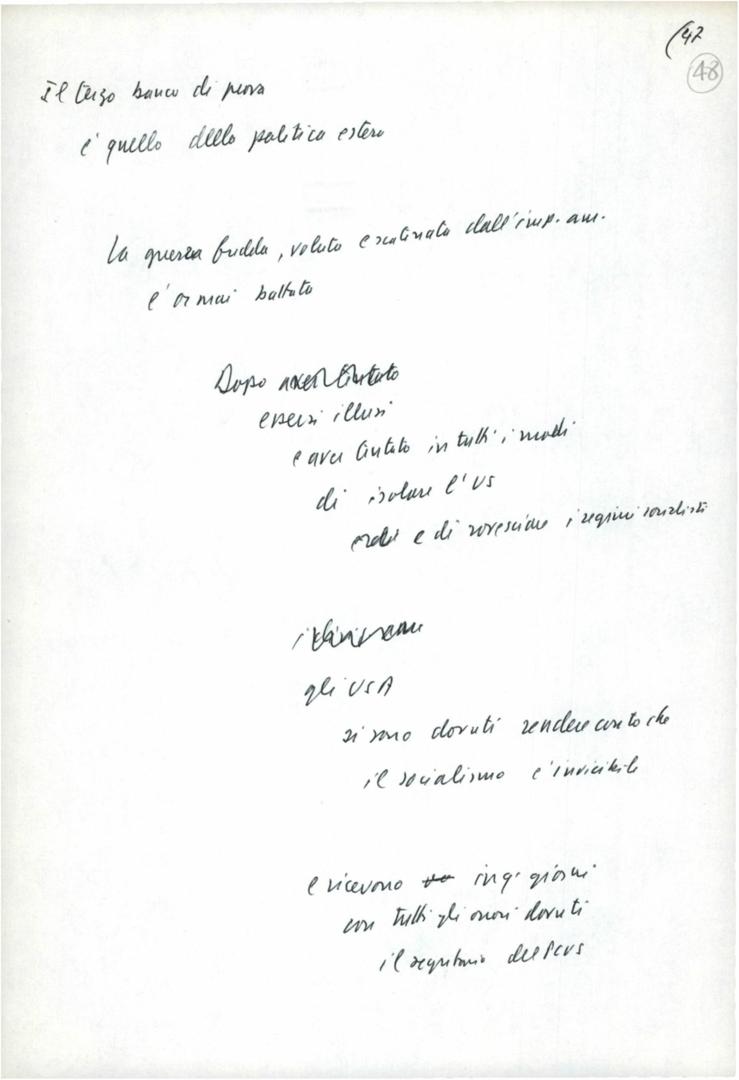 (47
48
Il terzo banco di prova
è quello della politica estera
La guerra fredda, voluta e scatenata dall'imp. am.
è ormai battuta
Dopo aver tentato
essersi illusi
e aver tentato in tutti i modi
di isolare l'US
e di rovesciare i regimi socialisti
gli USA
si sono dovuti rendere conto che
il socialismo è invicibile
e ricevono in q. giorni
con tutti gli onori dovuti
il segretario del PCUS